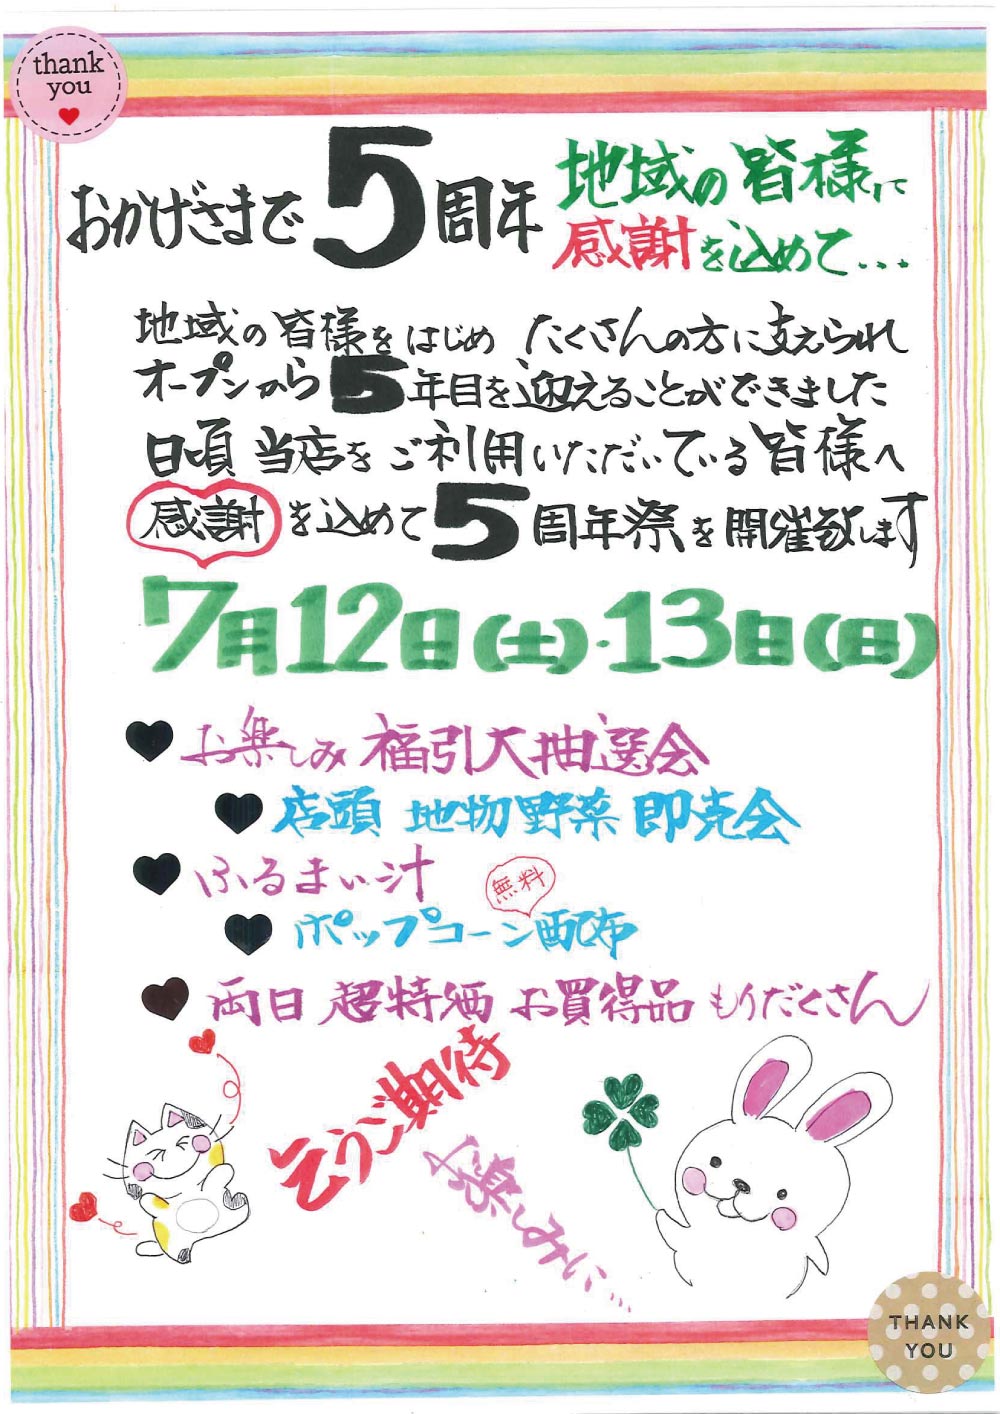 thank
you
おかげさまで5周年
地域の皆様に
感謝を込めて...
地域の皆様をはじめ たくさんの方に支えられ
オープンから5年目を迎えることができました
日頃 当店をご利用いただいている皆様へ
感謝を込めて5周年祭を開催致します
7月12日(土)・13日(日)
お楽しみ 福引大抽選会
店頭 地物野菜 即売会
ふるまい汁
無料
ポップコーン配布
両日 超特価 お買得品 もりだくさん
どうご期待
お楽しみに...
THANK
YOU